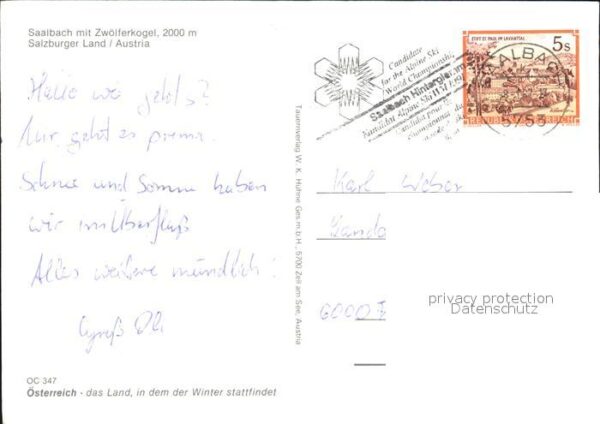 Saalbach mit Zwölferkogel, 2000 m
Salzburger Land / Austria
Hallo wie geht's?
Mir geht es prima.
Schnee und Sonne haben
wir im Überfluß
Alles weitere mündlich!
OC 347
Österreich - das Land, in dem der Winter stattfindet
Tauernverlag W. K. Hühne Ges.m.b.H., 5700 Zell am See, Austria
Candidate
for the Alpine Ski
World Championship
Saalbach Hinterglemm
STIFT ST. PAUL IM LAVANTTAL
5 S
REPUBLIK ÖSTERREICH
SAALBACH
5753
Karl Weber
6000
privacy protection
Datenschutz